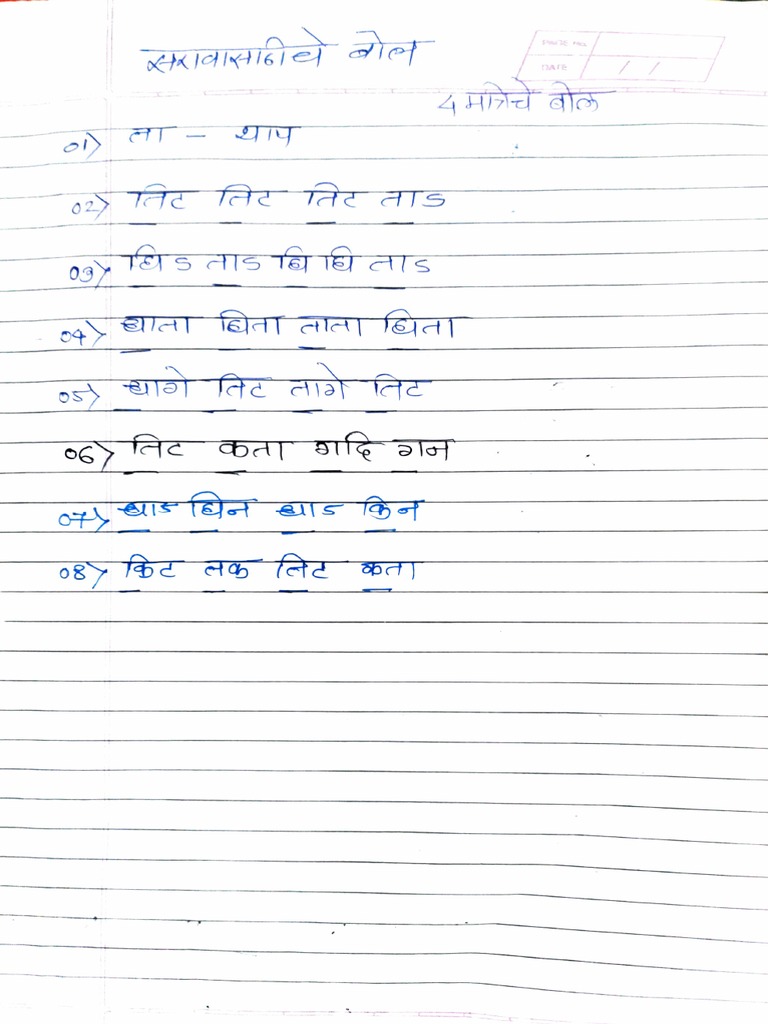 सरावासाठीचे बोल
PAGE NO.
DATE / /
4 मात्रेचे बोल
01) ता – थाप
02) तिट तिट तिट ताऽ
03) धिऽ ताऽ धि धि ताऽ
04) धाता धिता ताता धिता
05) धागे तिट तागे तिट
06) तिट कता गदि गन
07) धाऽ धिन धाऽ किन
08) किट तक तिट कता